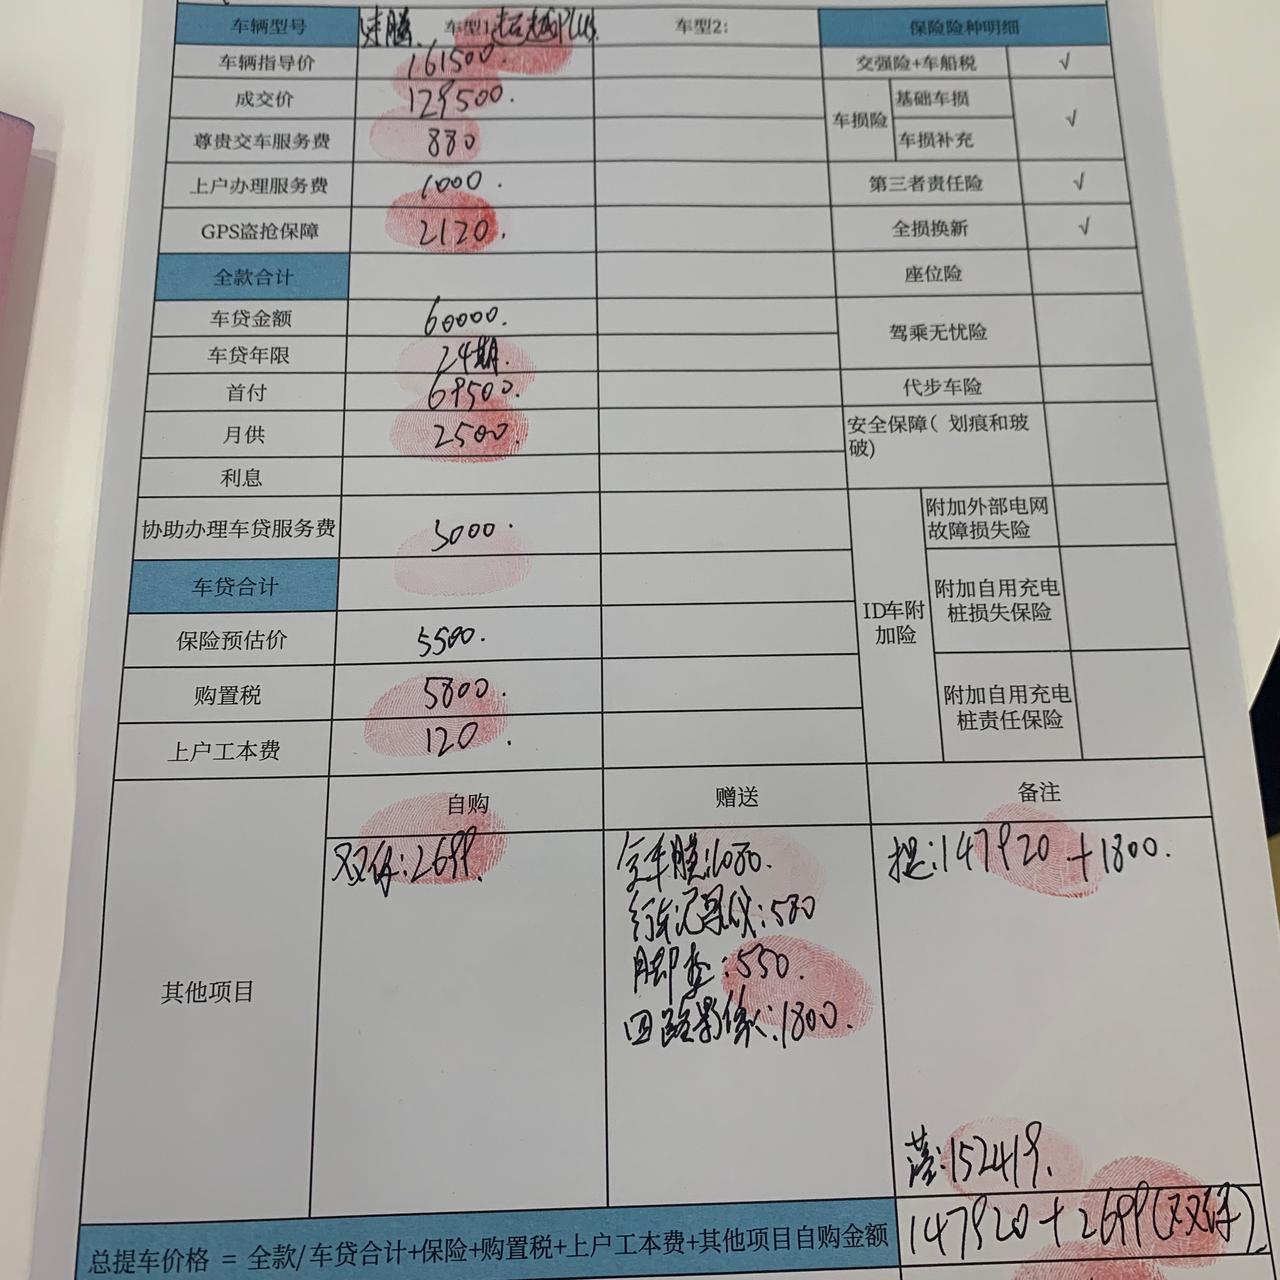 车辆型号 速腾 车型1: 超越PLUS 车型2: 保险险种明细
车辆指导价 161500. 交强险+车船税 √
成交价 129500. 车损险 基础车损 √
尊贵交车服务费 880 车损补充
上户办理服务费 1000. 第三者责任险 √
GPS盗抢保障 2120. 全损换新 √
全款合计 座位险
车贷金额 60000. 驾乘无忧险
车贷年限 24期.
首付 69500. 代步车险
月供 2500. 安全保障( 划痕和玻
破)
利息
协助办理车贷服务费 3000. ID车附
加险 附加外部电网
故障损失险
车贷合计 附加自用充电
桩损失保险
保险预估价 5500.
购置税 5800. 附加自用充电
桩责任保险
上户工本费 120.
自购 赠送 备注
其他项目
双保:2699. 全车膜:1080. 提:147920 +1800.
行车记录仪:580
脚垫:550.
回路影像:1800.
落:152419.
总提车价格 = 全款/车贷合计+保险+购置税+上户工本费+其他项目自购金额 147920+2699(双保)